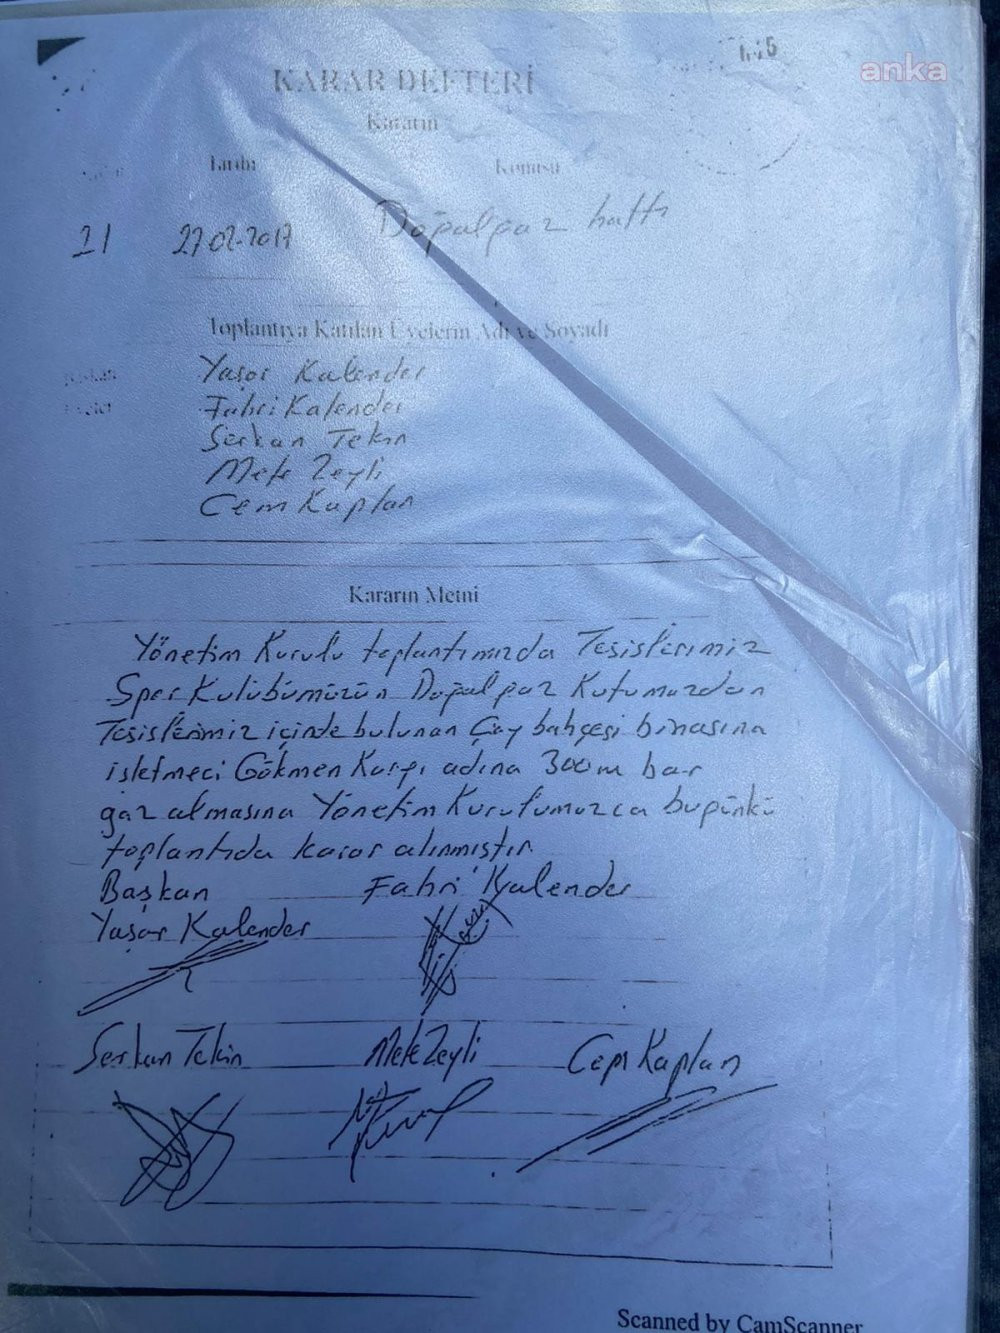 anka
KARAR DEFTERİ
Kararın
Tarihi
Konusu
21
27-02-2017
Doğalgaz hattı
Toplantıya Katılan Üyelerin Adı ve Soyadı
Başkan
Yaşar Kalender
Üyeler
Fahri Kalender
Serkan Tekin
Mete Zeyli
Cem Kaplan
Kararın Metni
Yönetim Kurulu toplantımızda Tesislerimiz
Spor Kulübümüzün Doğalgaz Kutumuzdan
Tesislerimiz içinde bulunan Çay bahçesi binasına
işletmeci Gökmen adına 300 m bar
gaz almasına Yönetim Kurulumuzca bugünkü
toplantıda karar alınmıştır
Başkan
Fahri Kalender
Yaşar Kalender
Serkan Tekin
Mete Zeyli
Cem Kaplan
Scanned by CamScanner